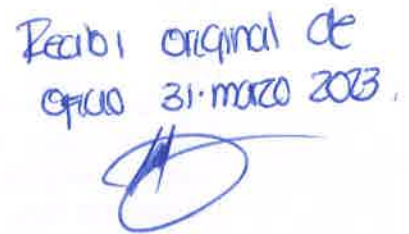 Recibi original de
oficio 31·marzo 2023.